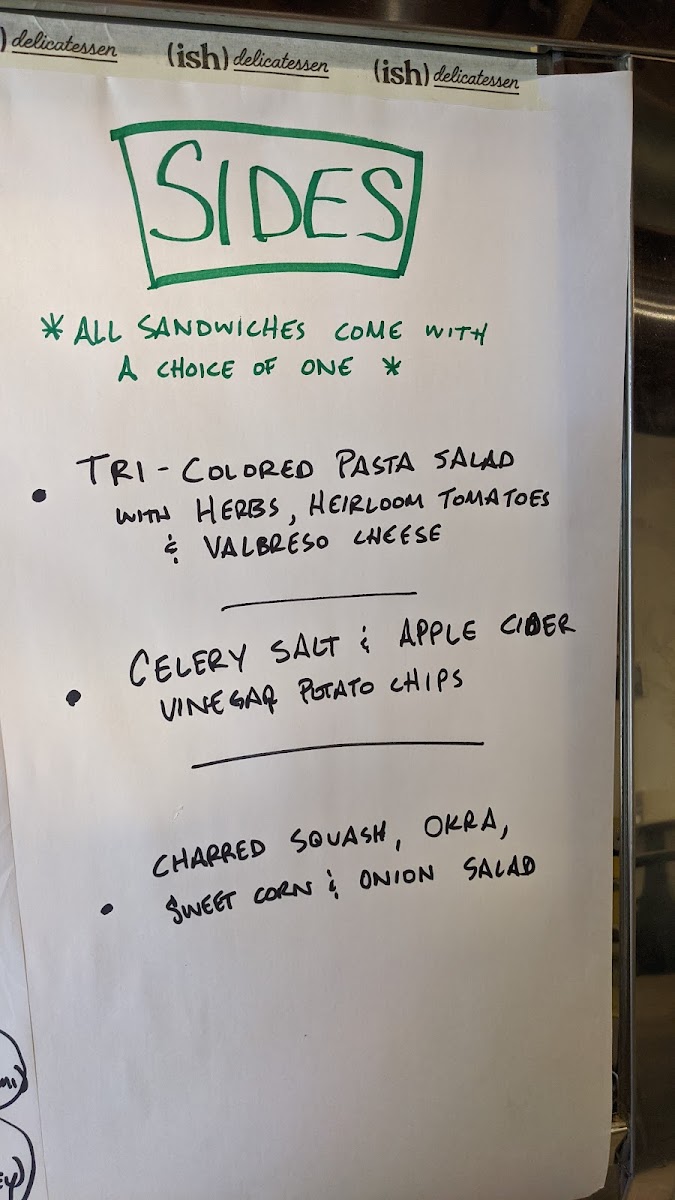 ) delicatessen (ish) delicatessen (ish) delicatessen
SIDES
* ALL SANDWICHES COME WITH
A CHOICE OF ONE *
• TRI-COLORED PASTA SALAD
WITH HERBS, HEIRLOOM TOMATOES
& VALBRESO CHEESE
• CELERY SALT & APPLE CIDER
VINEGAR POTATO CHIPS
• CHARRED SQUASH, OKRA,
SWEET CORN & ONION SALAD